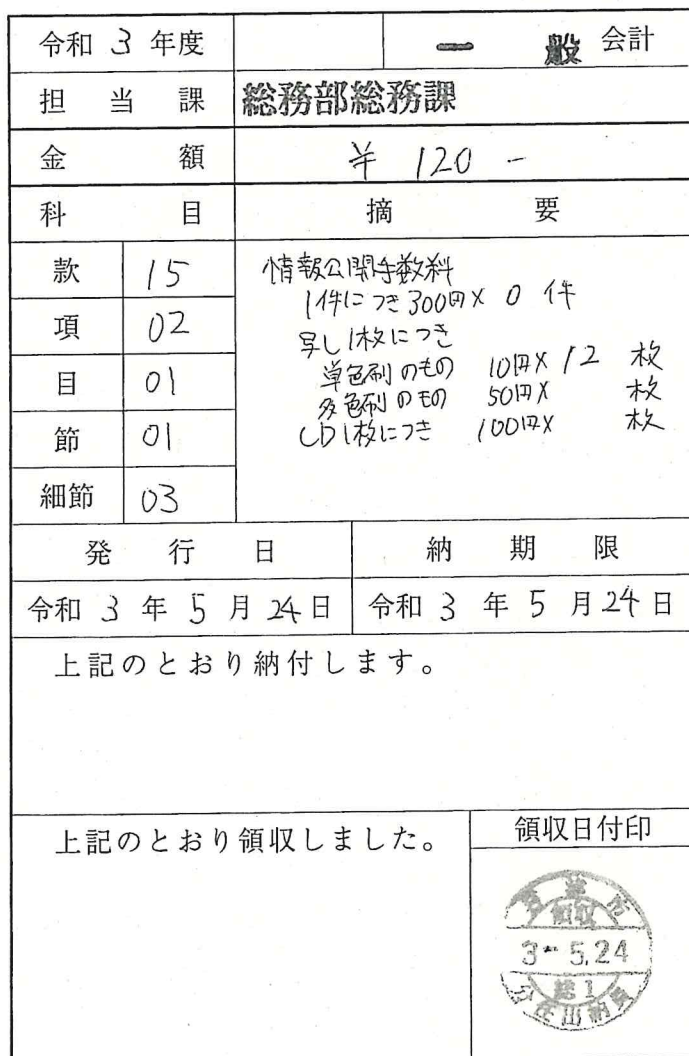 令和 3 年度 一般 会計
担当課 総務部総務課
金額 ¥ 120 -
科目 摘要
款 15
項 02
目 01
節 01
細節 03
情報公開手数料
1件につき300円× 0 件
写し1枚につき
単色刷のもの 10円× 12 枚
多色刷のもの 50円× 枚
CD1枚につき 100円× 枚
発行日 納期限
令和 3 年 5 月 24 日 令和 3 年 5 月 24 日
上記のとおり納付します。
上記のとおり領収しました。
領収日付印
領収
3 - 5.24
総1
分任出納員